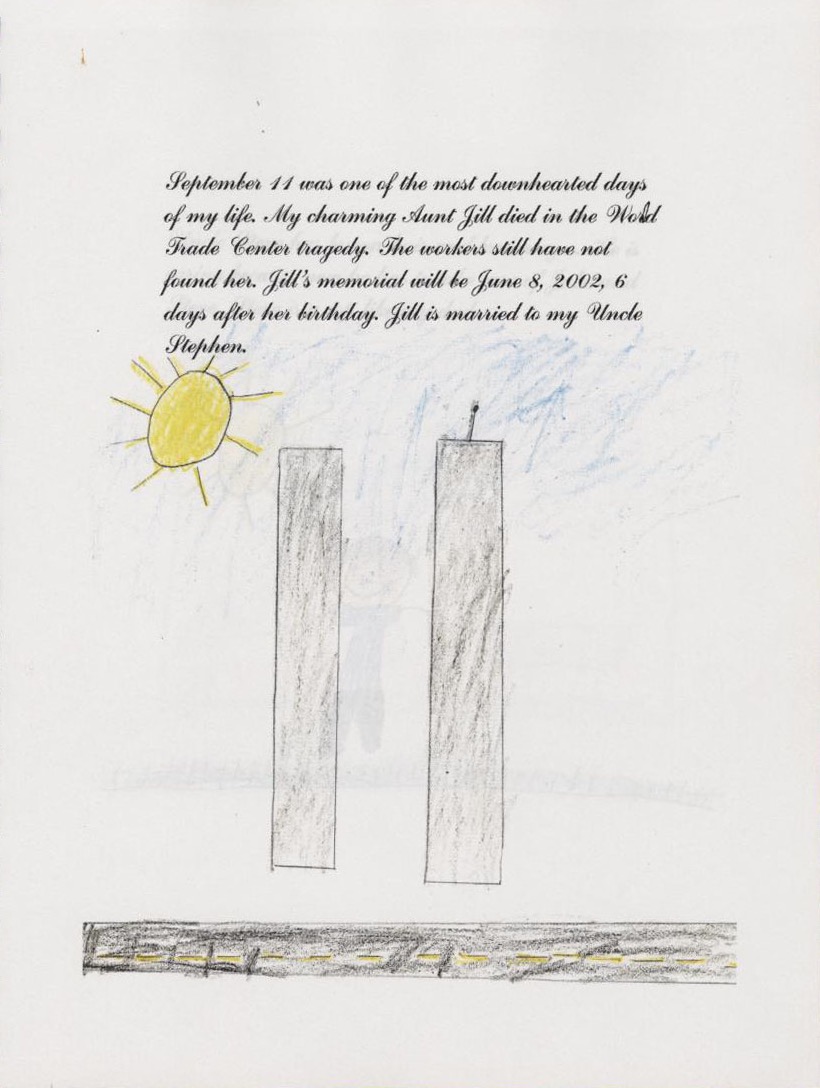 September 11 was one of the most downhearted days
of my life. My charming Aunt Jill died in the World
Trade Center tragedy. The workers still have not
found her. Jill's memorial will be June 8, 2002, 6
days after her birthday. Jill is married to my Uncle
Stephen.